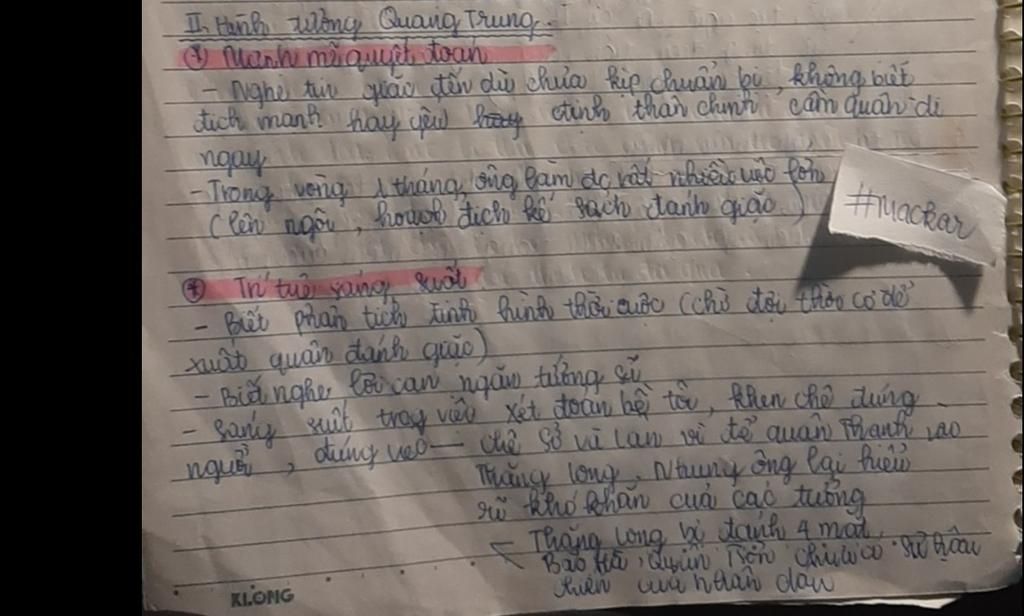 II. Hình tượng Quang Trung.
(*) Mạnh mẽ quyết đoán
- Nghe tin giặc đến dù chưa kịp chuẩn bị, không biết
địch mạnh hay yếu hay định thân chinh cầm quân đi
ngay
- Trong vòng 1 tháng, ông làm đc rất nhiều việc lớn
(lên ngôi, hoạch địch kế sách đánh giặc)
#Mackar
(*) Trí tuệ sáng suốt
- Biết phân tích tình hình thời cuộc (chờ đợi thời cơ để
xuất quân đánh giặc)
- Biết nghe lời can ngăn tướng sĩ
- sáng suốt trong việc xét đoán bề tôi, khen chê đúng
người, đúng việc - chê Sở và Lân vì để quân Thanh vào
Thăng Long, Nhưng ông lại hiểu
rõ khó khăn của các tướng
Thăng Long bị đánh 4 mặt
Bao Hà,
của nhân dân
KLONG